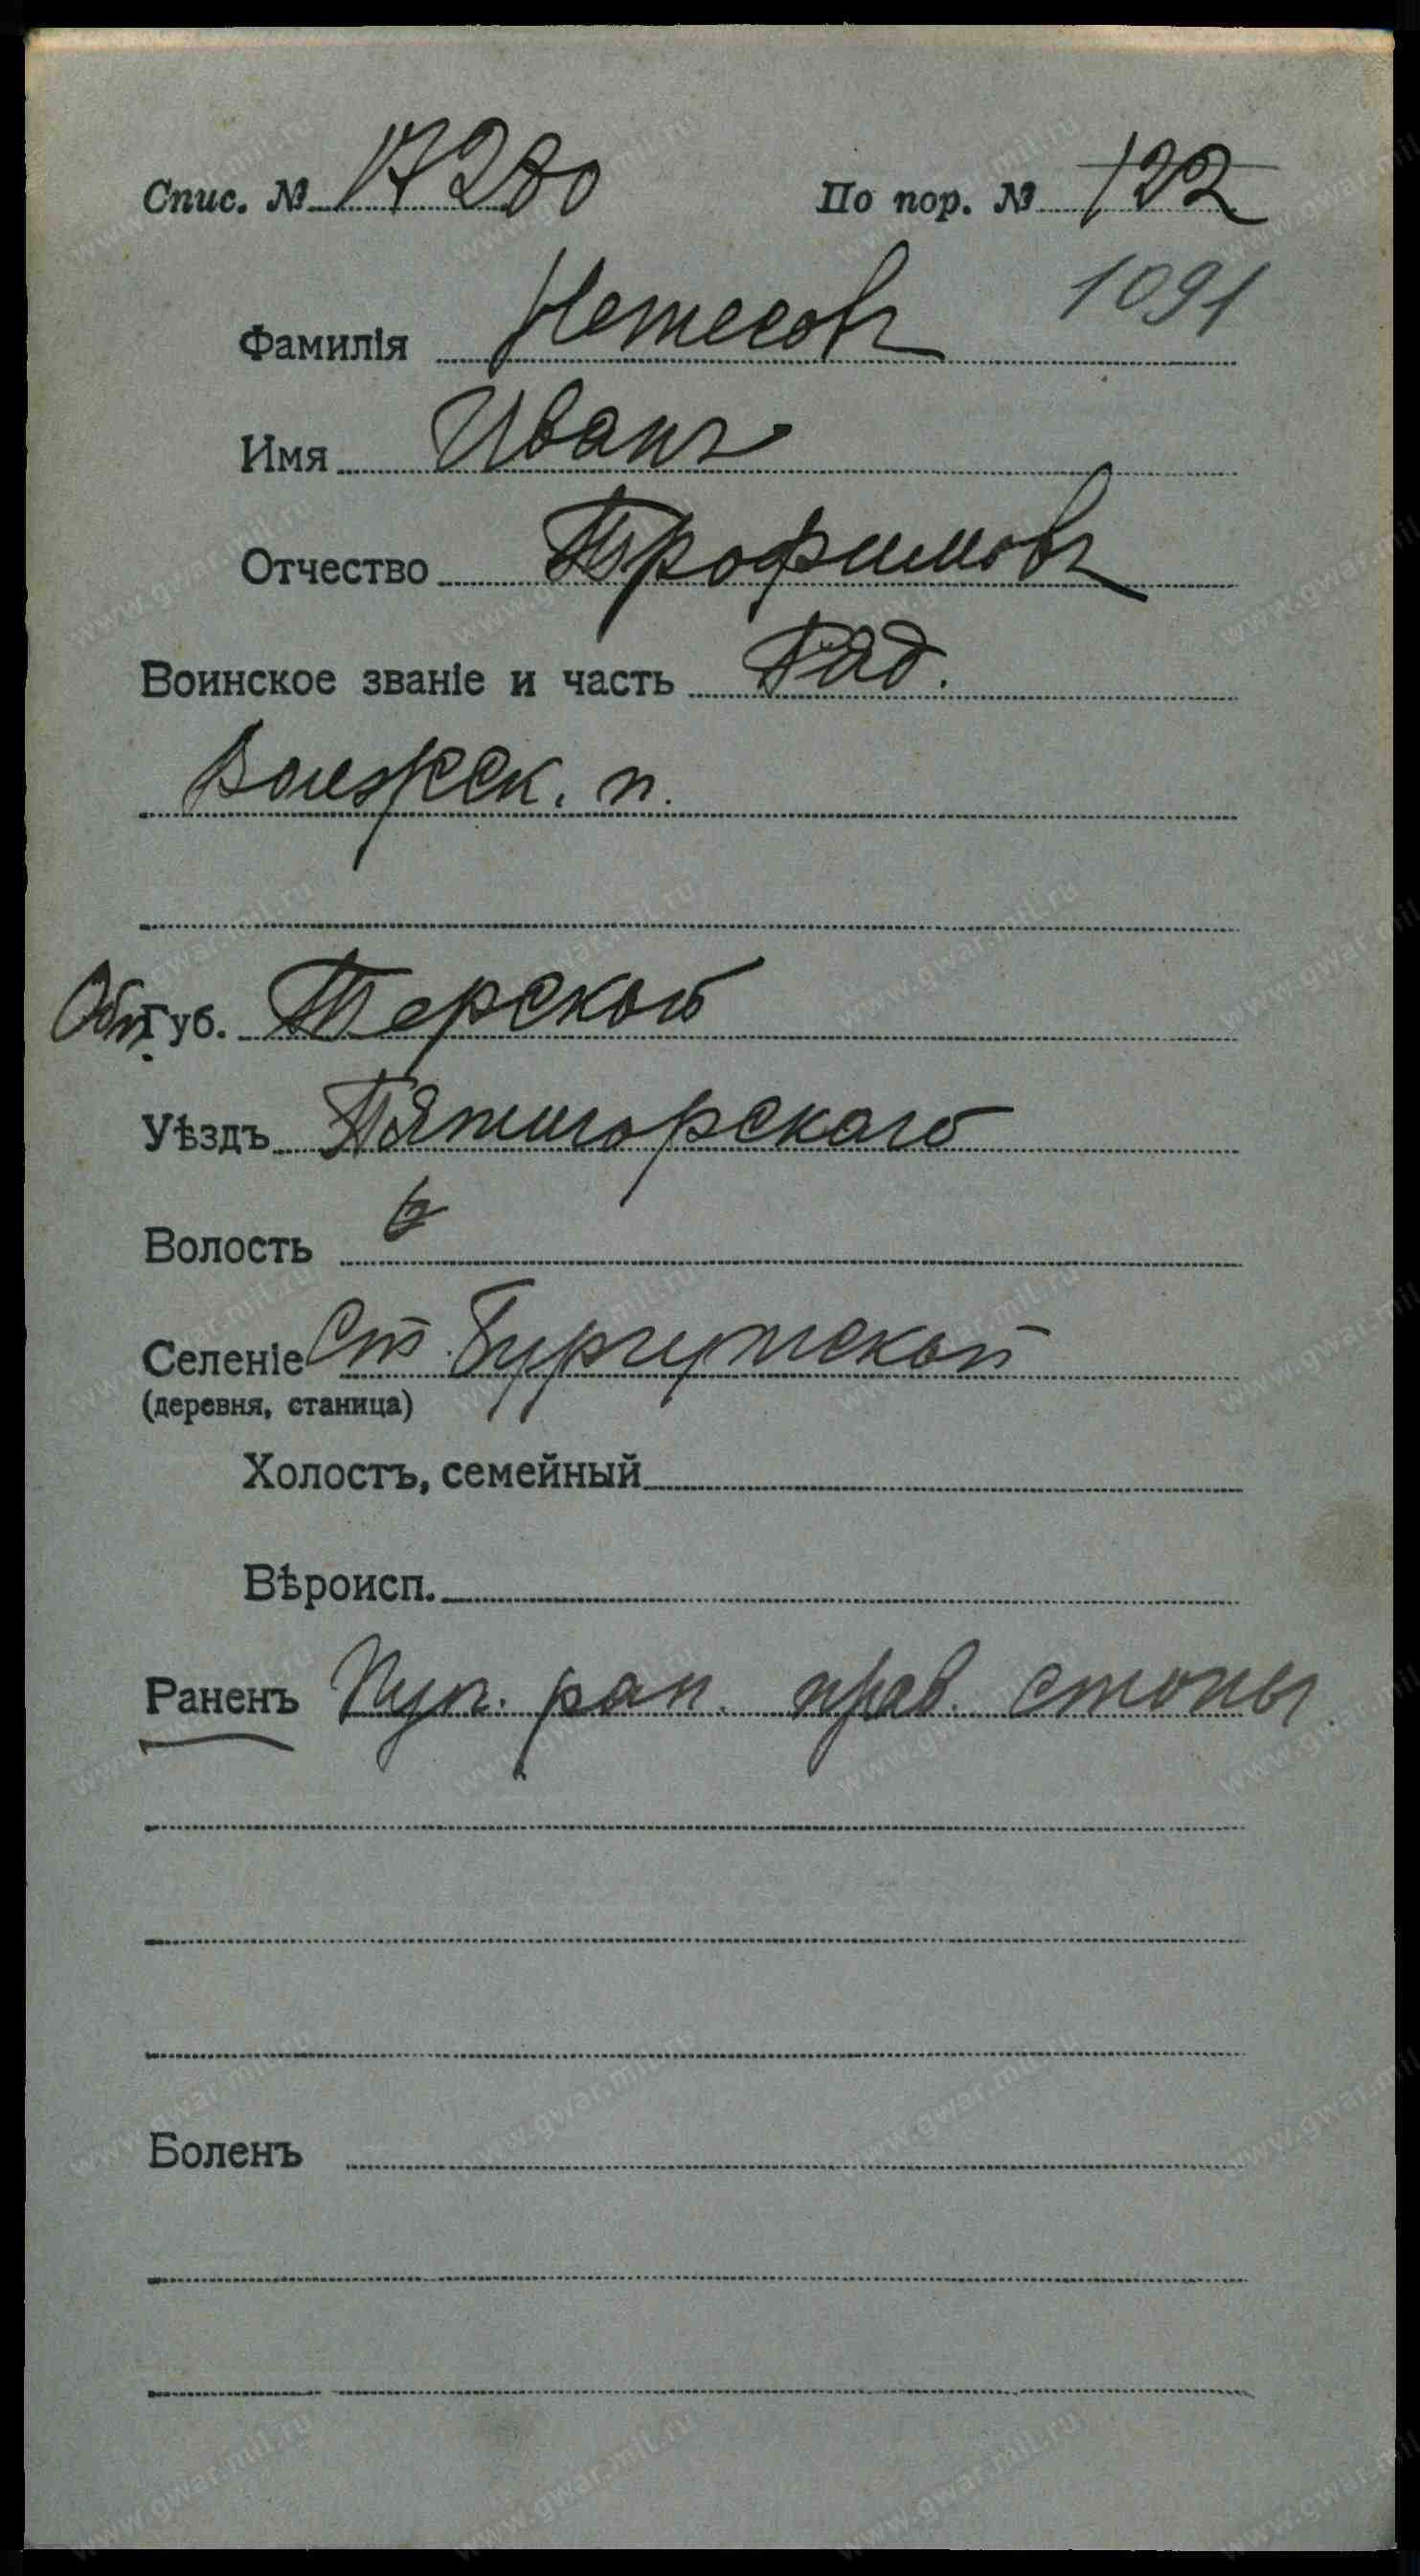 Спис. № 17280 По пор. № 122
1091
Фамилія Нетесовъ
Имя Иванъ
Отчество Трофимовъ
Воинское званіе и часть Ряд.
Волжск. п.
Обл. Губ. Терской
Уѣздъ Пятигорскаго
Волость
Селеніе Ст. Бургустской
(деревня, станица)
Холостъ, семейный
Вѣроисп.
Раненъ Пул. ран. прав. стопы
Боленъ
www.gwar.mil.ru